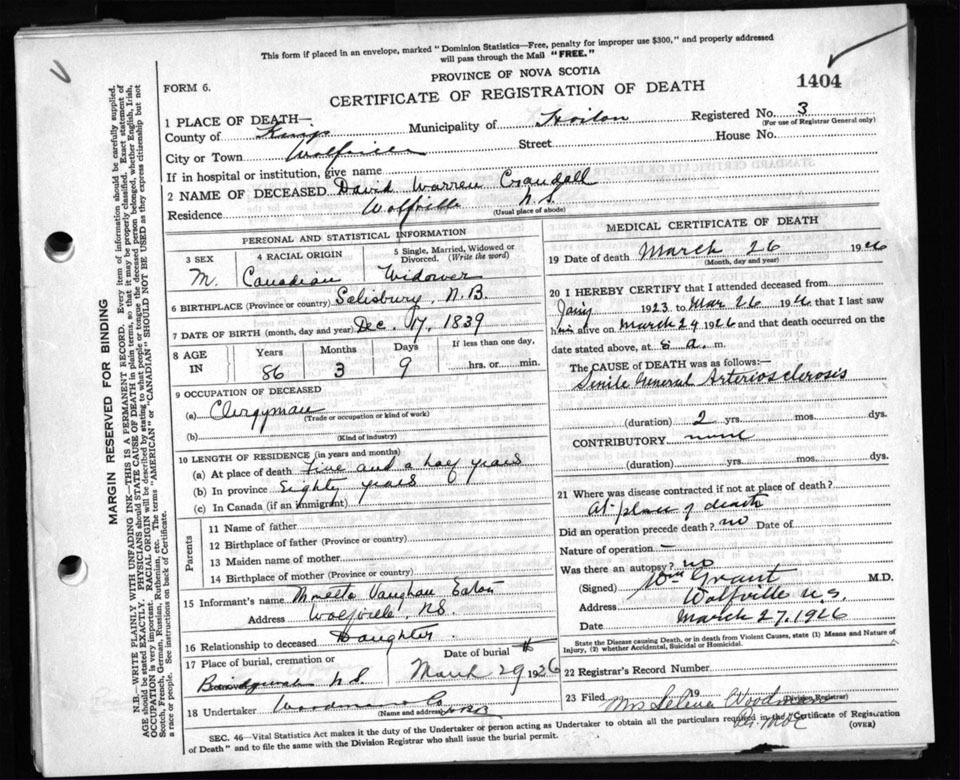 This form if placed in an envelope, marked "Dominion Statistics—Free, penalty for improper use $300," and properly addressed
will pass through the Mail "FREE."
PROVINCE OF NOVA SCOTIA
1404
FORM 6.
CERTIFICATE OF REGISTRATION OF DEATH
1 PLACE OF DEATH—
Registered No. 3
(For use of Registrar General only)
County of Kings Municipality of Horton
City or Town Wolfville Street House No.
If in hospital or institution, give name
2 NAME OF DECEASED David Warren Crandall
Residence Wolfville N.S.
(Usual place of abode)
PERSONAL AND STATISTICAL INFORMATION
3 SEX 4 RACIAL ORIGIN 5 Single, Married, Widowed or Divorced. (Write the word)
M. Canadian Widower
6 BIRTHPLACE (Province or country) Salisbury, N.B.
7 DATE OF BIRTH (month, day and year) Dec. 17, 1839
8 AGE IN Years Months Days If less than one day,
86 3 9 hrs. or min.
9 OCCUPATION OF DECEASED
(a) Clergyman
(Trade or occupation or kind of work)
(b)
(Kind of industry)
10 LENGTH OF RESIDENCE (in years and months)
(a) At place of death Five and a half years
(b) In province Eighty years
(c) In Canada (if an immigrant)
Parents
11 Name of father
12 Birthplace of father (Province or country)
13 Maiden name of mother
14 Birthplace of mother (Province or country)
15 Informant's name Vaughan Eaton
Address Wolfville, N.S.
16 Relationship to deceased Daughter.
17 Place of burial, cremation or Date of burial
N.S. March 29 1926
18 Undertaker Woodman Co
(Name and address)
MEDICAL CERTIFICATE OF DEATH
19 Date of death March 26 1926
(Month, day and year)
20 I HEREBY CERTIFY that I attended deceased from
Jany 1923 to Mar 26 1926 that I last saw
him alive on March 24 1926 and that death occurred on the
date stated above, at 8 a. m.
The CAUSE OF DEATH was as follows:—
Senile General Arteriosclerosis
(duration) 2 yrs. mos. dys.
CONTRIBUTORY none
(duration) yrs. mos. dys.
21 Where was disease contracted if not at place of death?
At place of death
Did an operation precede death? no Date of
Nature of operation —
Was there an autopsy? no
(Signed) Grant M.D.
Address Wolfville N.S.
Date March 27, 1926
State the Disease causing Death, or in death from Violent Causes, state (1) Means and Nature of
Injury, (2) whether Accidental, Suicidal or Homicidal.
22 Registrar's Record Number
23 Filed 19 Mrs Woodman
Division Registrar
SEC. 46—Vital Statistics Act makes it the duty of the Undertaker or person acting as Undertaker to obtain all the particulars required in the Certificate of Registration
of Death" and to file the same with the Division Registrar who shall issue the burial permit.
(OVER)
MARGIN RESERVED FOR BINDING
N.B.—WRITE PLAINLY WITH UNFADING INK—THIS IS A PERMANENT RECORD. Every item of information should be carefully supplied.
AGE should be stated EXACTLY. PHYSICIANS should STATE CAUSE OF DEATH in plain terms, so that it may be properly classified. Exact statement of
OCCUPATION is very important. RACIAL ORIGIN will be described by stating to what people or tongue the deceased person belonged, whether English, Irish,
Scotch, French, German, Russian, Ruthenian, etc. The terms "AMERICAN" or "CANADIAN" SHOULD NOT BE USED as they express citizenship but not
a race or people. See instructions on back of Certificate.